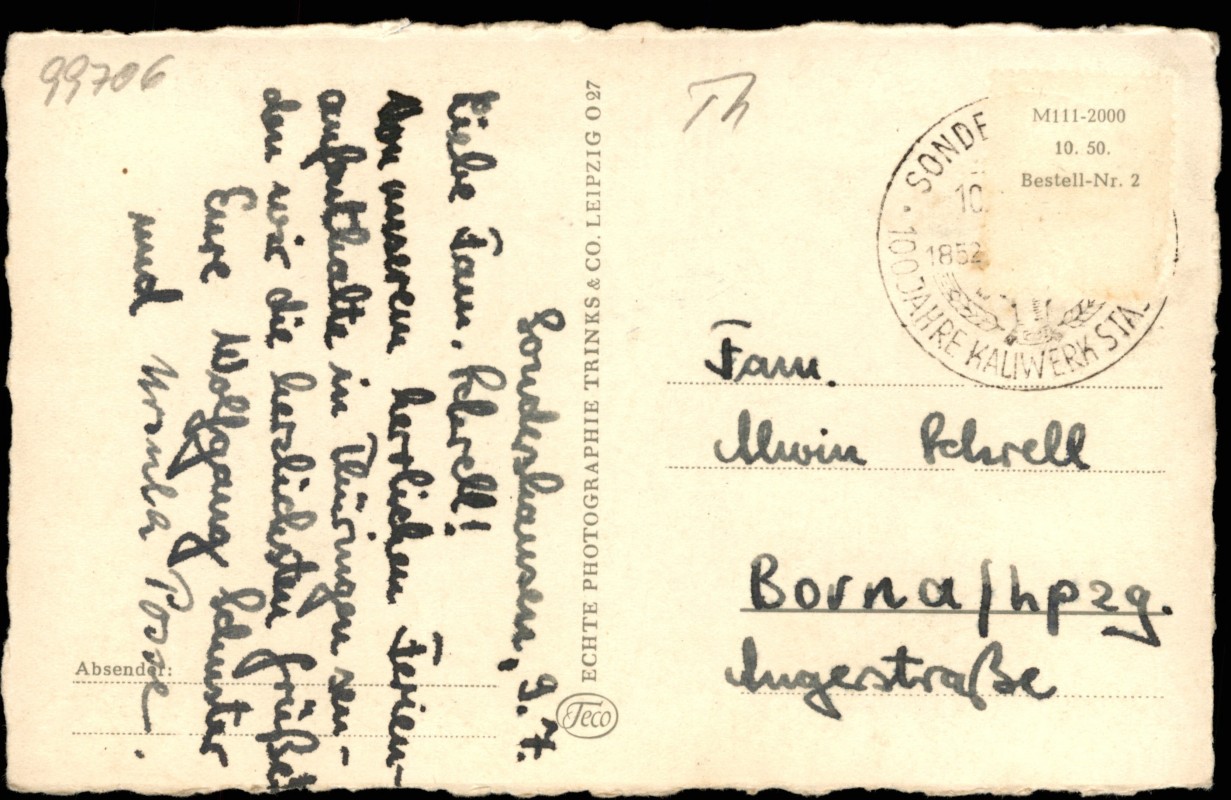 99706
Th
Sondershausen, 9. 7.
Liebe Fam. Schrell!
Von unserem herrlichen Ferien-
aufenthalte in Thüringen sen-
den wir die herzlichsten Grüße!
Eure Wolfgang Schuster
und Posse.
Absender:
ECHTE PHOTOGRAPHIE TRINKS & CO. LEIPZIG O 27
Teco
M111-2000
10. 50.
Bestell-Nr. 2
SONDE
10
1852
100 JAHRE KALIWERK STA
Fam.
Alwin Schrell
Borna/Lpzg.
Angerstraße